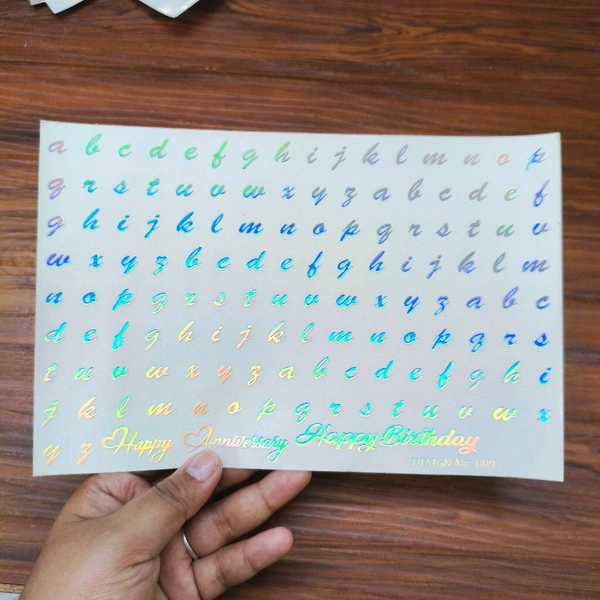 a b c d e f g h i j k l m n o p
q r s t u v w x y z a b c d e f
g h i j k l m n o p q r s t u v
w x y z b c d e f g h i j k l m
n o p q r s t u v w x y z a b c
d e f g h i j k l m n o p q r s
t u v w x y z a b c d e f g h i
j k l m n o p q r s t u v w x
y z Happy Anniversary Happy Birthday
DESIGN No. 009